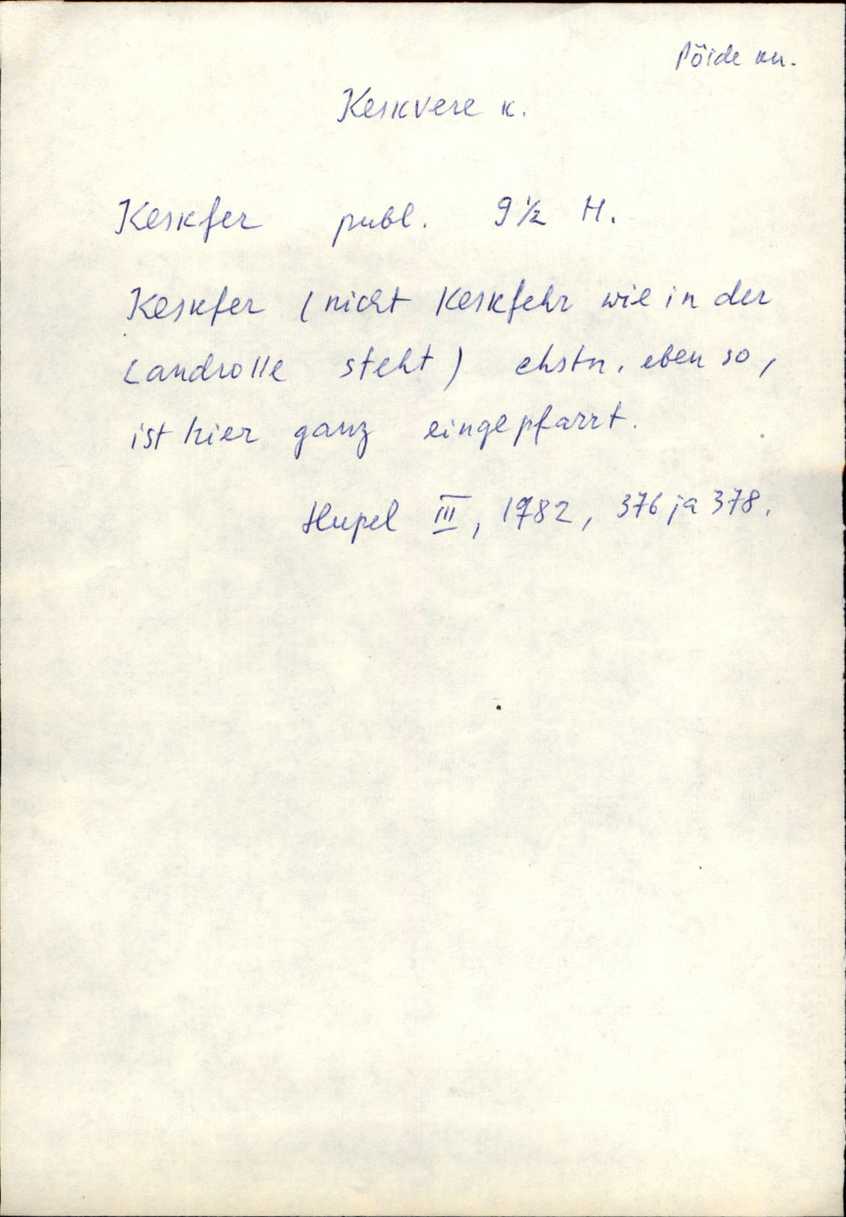 Pöide kn.
Keskvere k.
Keskfer publ. 9 1/2 H.
Keskfer (nicht Keskfehr wie in der
Landrolle steht) ehstn. eben so,
ist hier ganz eingepfarrt.
Hupel III, 1782, 376 ja 378.